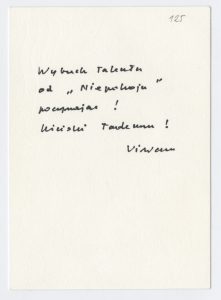 125
Wybuch talentu
od „Niepokoju"
poczynając!
Uściski Tadeuszu!